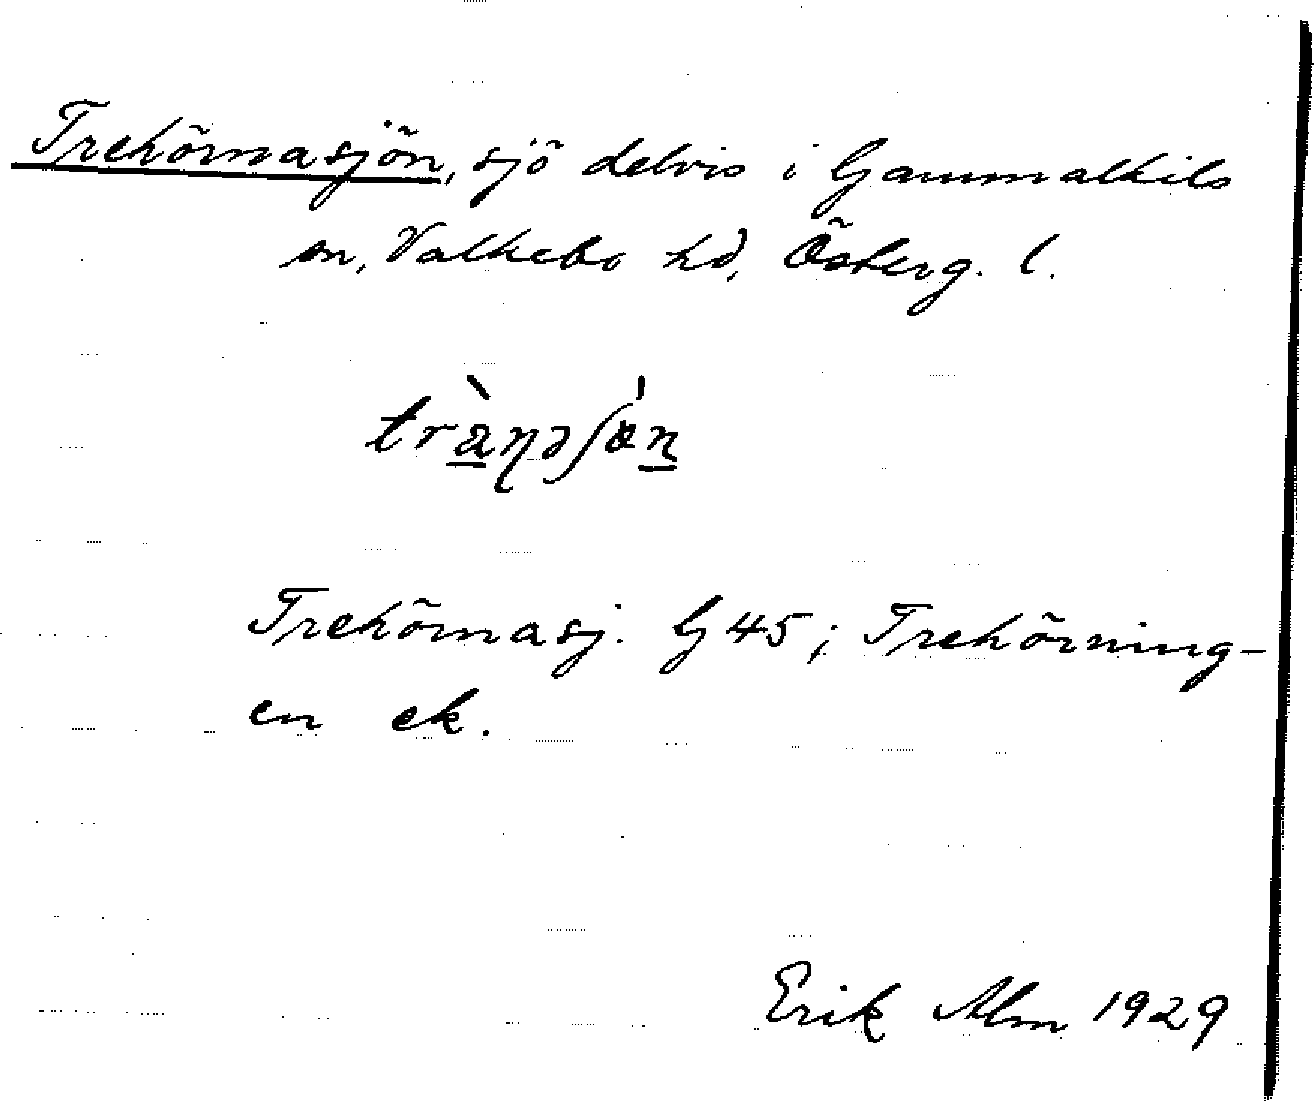 Trehörnasjön, sjö delvis i Gammalkils
sn, Valkebo hd, Österg. l.
Trehörnasj. G 45; Trehörning-
en ek.
Erik Alm 1929